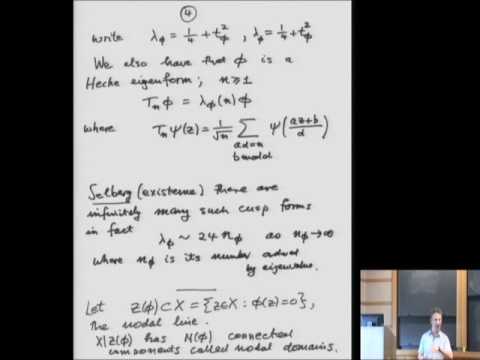 4
write λ_φ = 1/4 + t_φ², λ = 1/4 + t_φ²
We also have that φ is a
Hecke eigenform; n ≥ 1
T_n φ = λ_φ(n) φ
where T_n ψ(z) = 1/√n ∑_{ad=n, b mod d} ψ((az+b)/d)
Selberg (existence) there are
infinitely many such cusp forms
in fact λ_φ ~ 24 n_φ as n_φ → ∞
where n_φ is its number ordered
by eigenvalue.
Let Z(φ) ⊂ X = {z ∈ X : φ(z) = 0},
the nodal line.
X\Z(φ) has N(φ) connected
components called nodal domains.